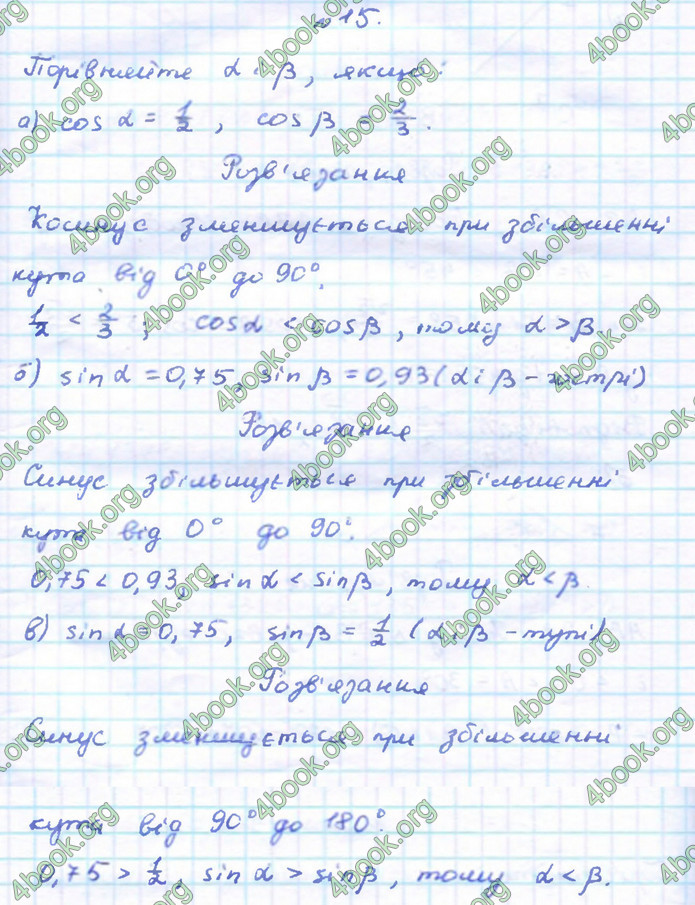 № 15.
Порівняйте α і β, якщо:
а) cos α = 1/2, cos β = 2/3.
Розв'язання
Косинус зменшується при збільшенні
кута від 0° до 90°.
1/2 < 2/3; cos α < cos β, тому α > β.
б) sin α = 0,75, sin β = 0,93 (α і β – гострі)
Розв'язання
Синус збільшується при збільшенні
кута від 0° до 90°.
0,75 < 0,93, sin α < sin β, тому α < β.
в) sin α = 0,75, sin β = 1/2 (α і β – тупі)
Розв'язання
Синус зменшується при збільшенні
кута від 90° до 180°.
0,75 > 1/2, sin α > sin β, тому α < β.
4book.org